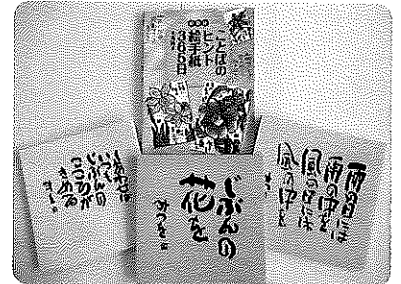 ことばの
ヒント
絵手紙
365日
しあわせは
いつも
じぶんの
こころが
きめる
みつを
じぶんの
花を
みつを
雨の日には
雨の中を
風の日には
風の中を